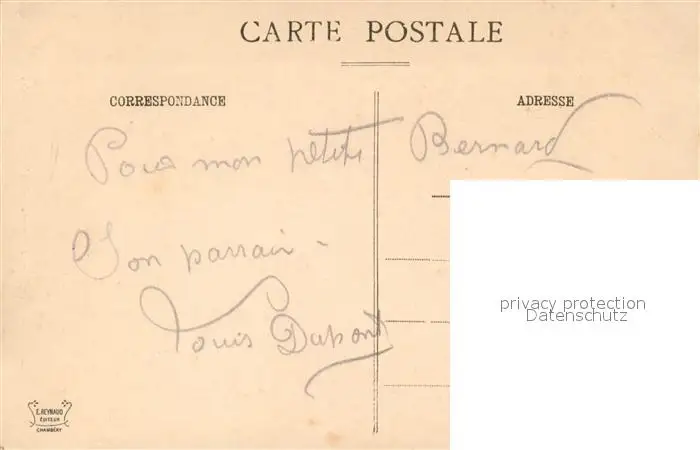 CARTE POSTALE
CORRESPONDANCE
ADRESSE
Pour mon petit Bernard
Son parrain -
Louis Dupont
privacy protection
Datenschutz
E. REYNAUD
ÉDITEUR
CHAMBÉRY